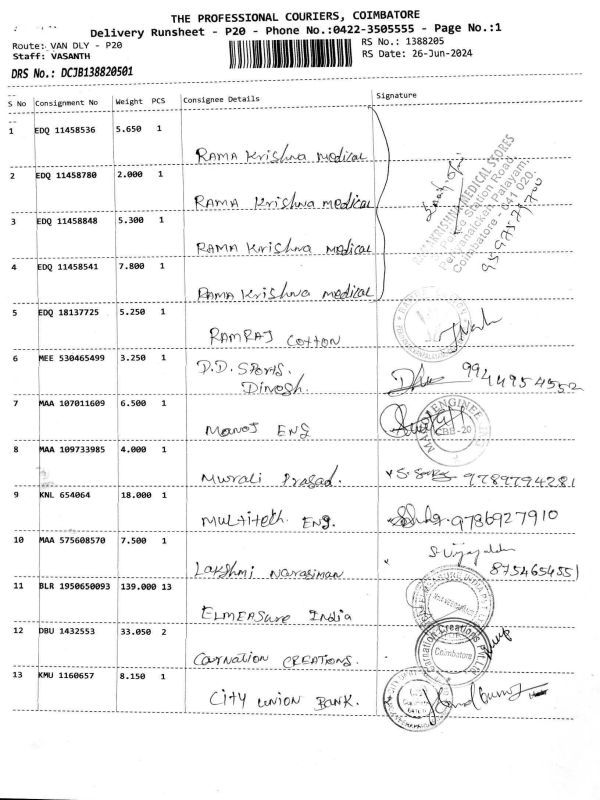 THE PROFESSIONAL COURIERS, COIMBATORE
Delivery Runsheet - P20 - Phone No.:0422-3505555 - Page No.:1
Route: VAN DLY - P20
RS No.: 1388205
Staff: VASANTH
RS Date: 26-Jun-2024
DRS No.: DCJB138820501
S No Consignment No Weight PCS Consignee Details Signature
1 EDQ 11458536 5.650 1
RAMA Krishna Medical
2 EDQ 11458780 2.000 1
RAMA Krishna Medical
3 EDQ 11458848 5.300 1
RAMA Krishna Medical
4 EDQ 11458541 7.800 1
RAMA Krishna Medical
RAMAKRISHNA MEDICAL STORES
Police Station Road,
Periyanaickenpalayam,
Coimbatore - 641 020.
5 EDQ 18137725 5.250 1
RAMRAJ COTTON
6 MEE 530465499 3.250 1
D.D. Sports.
Dinesh.
9944954552
7 MAA 107011609 6.500 1
Manoj ENG
CBE-20
8 MAA 109733985 4.000 1
Murali Prasad.
9789794281
9 KNL 654064 18.000 1
Multitech ENG.
9786927910
10 MAA 575608570 7.500 1
Lakshmi Narasiman
8754654551
11 BLR 1950650093 139.000 13
ELMEASure India
12 DBU 1432553 33.050 2
Carnation CREATIONS.
Carnation Creations Pvt Ltd
Coimbatore
13 KMU 1160657 8.150 1
City Union Bank.